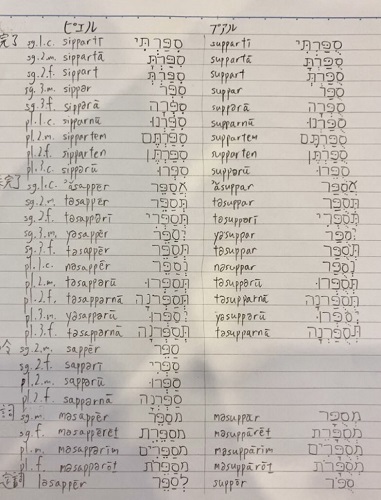 ピエル プアル
完了 sg.1.c. sippartī סִפַּרְתִּי suppartī סֻפַּרְתִּי
sg.2.m. sippartā סִפַּרְתָּ suppartā סֻפַּרְתָּ
sg.2.f. sippart סִפַּרְתְּ support סֻפַּרְתְּ
sg.3.m. sippar סִפֵּר suppar סֻפַּר
sg.3.f. sippərā סִפְּרָה suppərā סֻפְּרָה
pl.1.c. sipparnū סִפַּרְנוּ supparnū סֻפַּרְנוּ
pl.2.m. sippartem סִפַּרְתֶּם suppartem סֻפַּרְתֶּם
pl.2.f. sipparten סִפַּרְתֶּן supparten סֻפַּרְתֶּן
pl.3.c. sippərū סִפְּרוּ suppərū סֻפְּרוּ
未完了 sg.1.c. ʾăsappēr ʾăsuppar
sg.2.m. təsappēr תְּסַפֵּר təsuppar תְּסֻפַּר
sg.2.f. təsappərī תְּסַפְּרִי təsuppərī תְּסֻפְּרִי
sg.3.m. yəsappēr יְסַפֵּר yəsuppar יְסֻפַּר
sg.3.f. təsappēr תְּסַפֵּר təsuppar תְּסֻפַּר
pl.1.c. nəsappēr נְסַפֵּר nəsuppar נְסֻפַּר
pl.2.m. təsappərū תְּסַפְּרוּ təsuppərū תְּסֻפְּרוּ
pl.2.f. təsappərnā תְּסַפֵּרְנָה təsupparnā תְּסֻפַּרְנָה
pl.3.m. yəsappərū יְסַפְּרוּ yəsuppərū יְסֻפְּרוּ
pl.3.f. təsapparnā תְּסַפֵּרְנָה təsupparnā תְּסֻפַּרְנָה
sg.2.m. sappēr סַפֵּר
sg.2.f. sappərī סַפְּרִי
pl.2.m. sappərū סַפְּרוּ
pl.2.f. sappərnā סַפֵּרְנָה
詞 sg.m. məsappēr מְסַפֵּר məsuppār מְסֻפָּר
sg.f. məsappereṯ מְסַפֶּרֶת məsuppāreṯ מְסֻפֶּרֶת
pl.m. məsappərīm מְסַפְּרִים məsuppārīm מְסֻפָּרִים
pl.f. məsappərōṯ מְסַפְּרֹת məsuppārōṯ מְסֻפָּרֹת
ləsappēr לְסַפֵּר suppēr